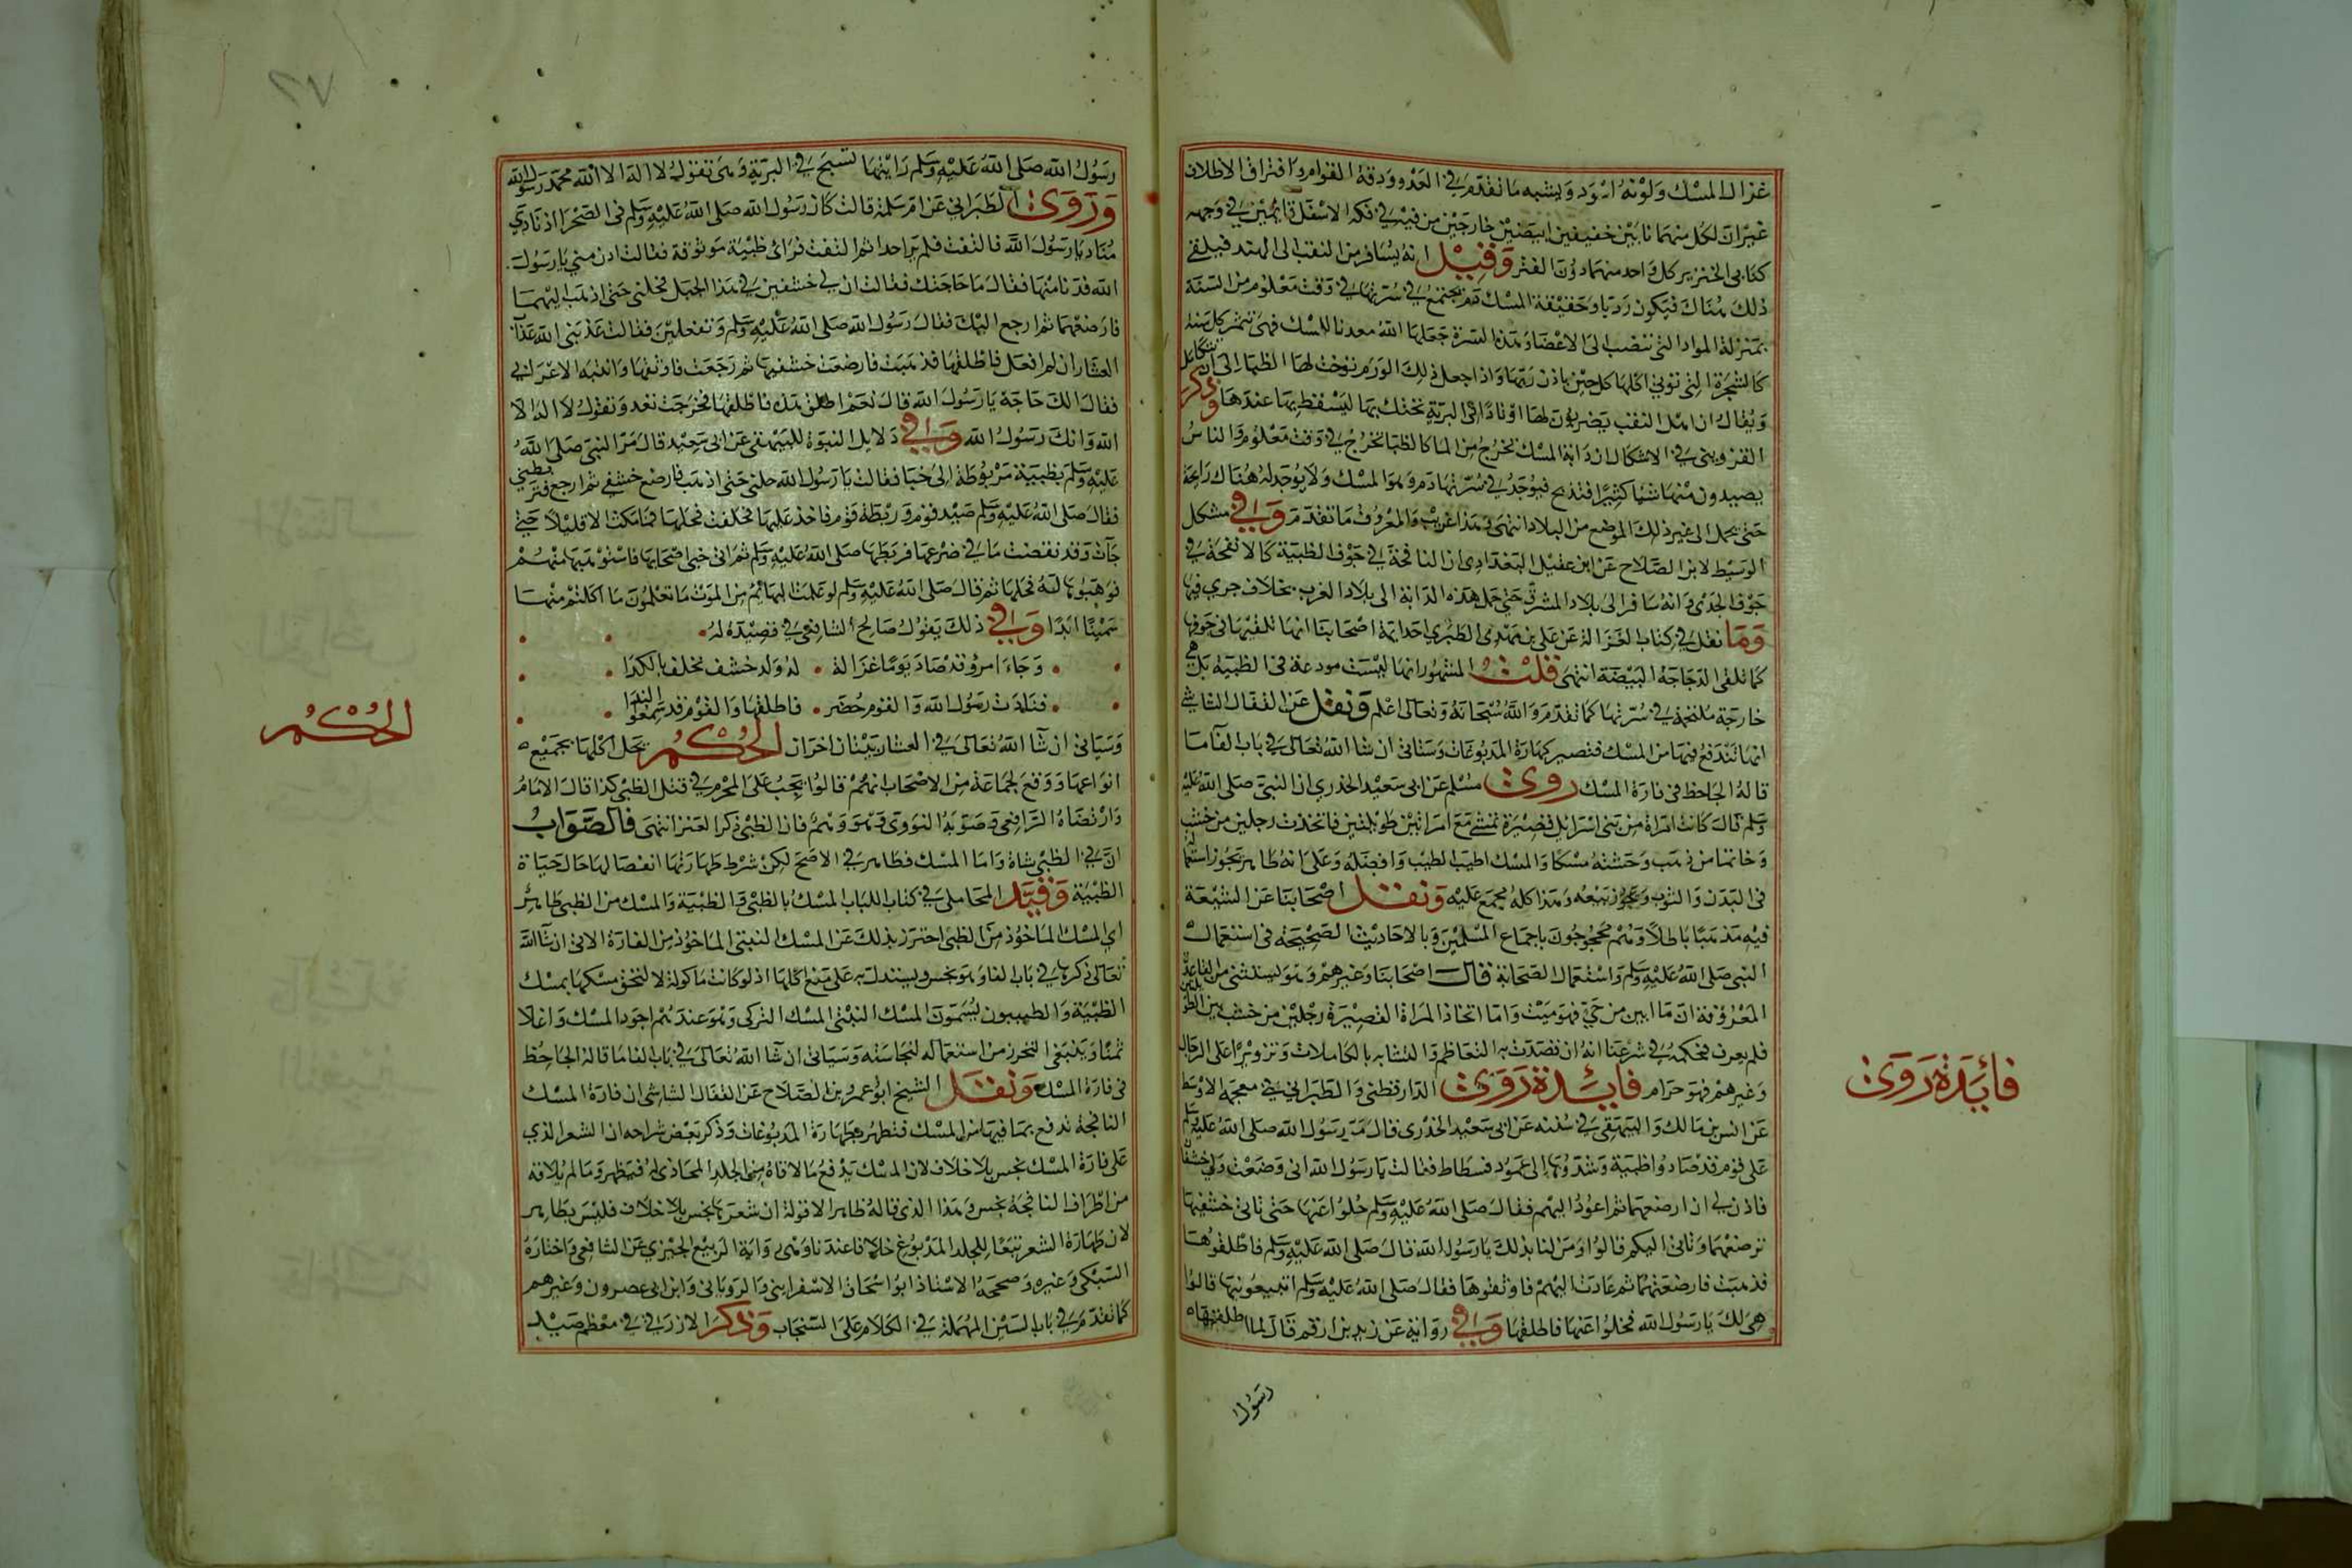 غزال المسك ولونه اسود ويشبه ما تقدم في العدو ودقة القوام وافتراق الاظلاف
غير ان لكل منهما نابين خفيفين ابيضين خارجين من فيه في فكه الاسفل قايمين في وجهه
كنابى الخنزير كل واحد منهما دون الفتر وقيل انه يسافر من التبت الى الهند فيلقى
ذلك هناك فيكون رديا وحقيقة المسك دم يجتمع في سرتها في وقت معلوم من السنة
بمنزلة المواد التى تنصب الى الاعضا وهذه السرة جعلها الله معدنا للمسك فهى تثمر كل سنة
كالشجرة التى توتي اكلها كل حين باذن ربها واذا حصل ذلك الورم مرضت لها الظبا الى ان يتكامل
ويقال ان اهل التبت يضربون لها اوتادا في البرية تحتك بها ليسقط بها عندها وذكر
القزوينى في الاشكال ان دابة المسك تخرج من الما كالظبا تخرج في وقت معلوم والناس
يصيدون منها شيا كثيرا فتذبح فيوجد في سرتها دم وهو المسك ولا يوجد له هناك رايحة
حتى يحمل الى غير ذلك الموضع من البلاد انتهى وهذا غريب والمعروف ما تقدم وفي مشكل
الوسيط لابن الصلاح عن ابن عقيل البغدادى ان النافجة في جوف الظبية كالانفحة في
جوف الجدى وانه سافر الى بلاد المشرق حتى حمل هذه الدابة الى بلاد الغرب بخلاف جرى فيها
ومما نقل في كتاب الغزالة عن على بن مهدى الطبرى احد ايمة اصحابنا انها تلقيها فى جوفها
كما تلقى الدجاجة البيضة انتهى قلت المشهور انها ليست مودعة فى الظبية بل هى
خارجة ملتحمة في سرتها كما تقدم والله سبحانه وتعالى اعلم ونقل عن القفال الشاشي
انها تندفع فيها من المسك فتصير كهارة المدبوغات وستاتى ان شا الله تعالى في باب الفا ما
قاله الجاحظ فى فارة المسك روى مسلم عن ابى سعيد الخدري ان النبى صلى الله عليه
وسلم قال كانت امراة من بنى اسرايل قصيرة تمشى مع امراتين طويلتين فاتخذت رجلين من خشب
وخاتما من ذهب وحشته مسكا والمسك اطيب الطيب وافضله وعلى انه طاهر يجوز استعماله
فى البدن والثوب ويجوز بيعه وهذا كله مجمع عليه ونقل اصحابنا عن الشيعة
فيه مذهبا باطلا وهم محجوجون باجماع المسلمين وبالاحاديث الصحيحة فى استعمال
النبى صلى الله عليه وسلم واستعمال الصحابة قال اصحابنا وغيرهم وهو مستثنى من القاعدة
المعروفة ان ما ابين من حي فهو ميت واما اتخاذ المراة القصيرة رجلين من خشب بين الطويلتين
فلم يعرف فحكمه في شرعنا انه ان قصدت به التعاظم والتشابه بالكاملات وتزويرا على الرجال
وغيرهم فهو حرام فايدة روى الدارقطنى والطبرانى في معجمه الاوسط
عن انس بن مالك والبيهقى في سننه عن ابى سعيد الخدرى قال مر رسول الله صلى الله عليه وسلم
على قوم قد صادوا ظبية وشدوها الى عمود فسطاط فقالت يا رسول الله انى وضعت ولي خشفان
فاذن لي ان ارضعهما ثم اعود اليهم فقال صلى الله عليه وسلم خلوا عنها حتى تاتى خشفيها
ترضعهما وتاتى اليكم قالوا ومن لنا بذلك يا رسول الله قال صلى الله عليه وسلم انا فاطلقوها
فذهبت فارضعتهما ثم عادت اليهم فاوثقوها فقال صلى الله عليه وسلم اتبيعونيها قالوا
هى لك يا رسول الله فخلوا عنها فاطلقها وفي رواية عن زيد بن ارقم قال لما اطلقها
رسول
فائدة روى
رسول الله صلى الله عليه وسلم رايتها تسبح في البرية وهى تقول لا اله الا الله محمد رسول الله
وروى الطبرانى عن ام سلمة قالت كان رسول الله صلى الله عليه وسلم فى الصحرا اذ نادى
مناد يا رسول الله فالتفت فلم ير احدا ثم التفت فرائ ظبية موثوقة فقالت ادن مني يا رسول
الله فدنا منها فقال ما حاجتك فقالت ان لي خشفين في هذا الجبل فخلنى حتى اذهب اليهما
فارضعهما ثم ارجع اليك فقال رسول الله صلى الله عليه وسلم وتفعلين فقالت عذبنى الله عذاب
العشار ان لم افعل فاطلقها فذهبت فارضعت خشفيها ثم رجعت فاوثقها وانتبه الاعرابي
فقال الك حاجة يا رسول الله قال نعم اطلق هذه فاطلقها فخرجت تعد وتقول لا اله الا
الله وانك رسول الله وفي دلايل النبوة للبيهقى عن ابى سعيد قال مر النبى صلى الله
عليه وسلم بظبية مربوطة الى خبا فقالت يا رسول الله حلنى حتى اذهب فارضع خشفي ثم ارجع فتربطني
فقال صلى الله عليه وسلم صيد قوم وربطة قوم فاخذ عليها فحلفت فحلها فما مكثت الا قليلا حتى
جات وقد نفضت ما في ضرعها فربطها صلى الله عليه وسلم ثم اتى خبى اصحابها فاستوهبها منهم
فوهبوها له فحلها ثم قال صلى الله عليه وسلم لو علمت البهائم من الموت ما تعلمون ما اكلتم منها
سمينا ابدا وفي ذلك يقول صالح الشافعى في قصيدة له
وجاء امرؤ قد صاد يوما غزالة لها ولد خشف تخلف بالكدا
فنادت رسول الله والقوم حضر فاطلقها والقوم قد سمعوا الندا
وسياتى ان شا الله تعالى في العشار بيتان اخران الحكم يحل اكلها بجميع
انواعها ووقع لجماعة من الاصحاب انهم قالوا يجب على المحرم في قتل الظبى كذا قال الامام
وارتضاه الرافعى وصوبه النووى وهو وهم فان الظبى ذكر العنز انتهى فالصواب
ان في الظبى شاة واما المسك فطاهر في الاصح لكن شرط طهارتها انفصالها حال حياة
الظبية وقيد المحاملى في كتاب اللباب المسك بالظبى والظبية والمسك من الظبى طاهر
اي المسك الماخوذ من الظبى احترز بذلك عن المسك التبتى الماخوذ من الفارة الاتى ان شا الله
تعالى ذكرها في باب الفا وهو نجس ويستدل به على منع اكلها اذ لو كانت ماكولة لالتحق مسكها بمسك
الظبية والطيبيون يسمون المسك التبتى المسك التركى وهو عندهم اجود المسك واغلا
ثمنا وينبغى التحرز من استعماله لنجاسته وسياتى ان شا الله تعالى في باب الفا ما قاله الجاحظ
فى فارة المسك ونقل الشيخ ابو عمر بن الصلاح عن القفال الشاشى ان فارة المسك
النافجة تدفع بما فيها من المسك فتطهر كطهارة المدبوغات وذكر بعض شراحه ان الشعر الذي
على فارة المسك نجس بلا خلاف لان المسك يدفع ما لاقاه من الجلد المحاذى له فيطهر وما لم يلاقه
من اطراف النافجة نجس وهذا الذى قاله ظاهر الا قوله ان شعرها نجس بلا خلاف فليس بظاهر
لان طهارة الشعر تبعا للجلد المدبوغ خلافا عندنا وهى رواية الربيع الجيزي عن الشافعى واختاره
السبكى وغيره وصححه الاستاذ ابو اسحاق الاسفراينى والرويانى وابن ابى عصرون وغيرهم
كما تقدم في باب السين المهملة في الكلام على السنجاب وذكر الازرقي في معظم صيد
الحكم
٢٧